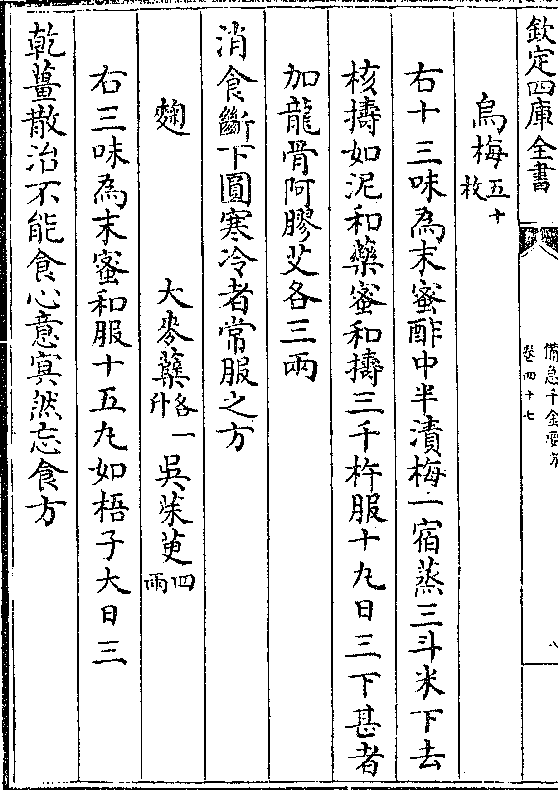 欽定四庫全書
備急千金要方
卷四十七
八
烏梅五十枚
右十三味為末蜜酢中半漬梅一宿蒸三斗米下去
核擣如泥和藥蜜和擣三千杵服十丸日三下甚者
加龍骨阿膠艾各三兩
消食斷下圓寒冷者常服之方
麴 大麥蘗各一升 吳茱萸四兩
右三味為末蜜和服十五丸如梧子大日三
乾薑散治不能食心意寞然忘食方